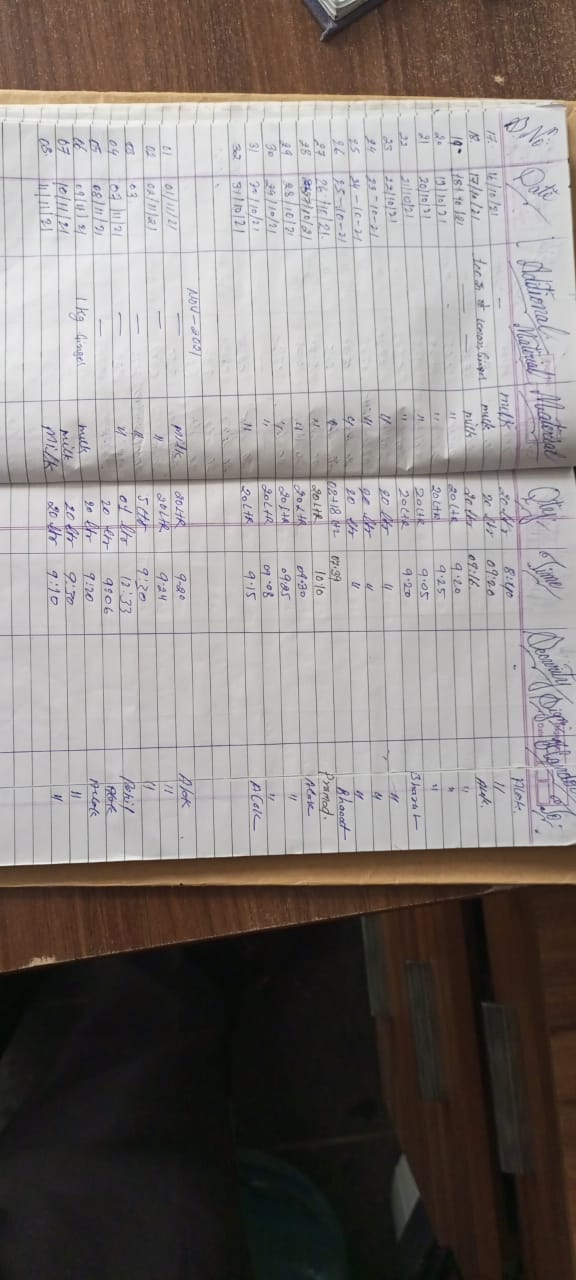 S.No Date Aditional Matirial Material Qty Time Security Signature
17. 16/10/21 — milk 20 ltr 8:40 Alok.
18. 17/10/21 milk 20 ltr 09:20 "
19. 18/10/21 — milk 20 ltr 09:16
20 19/10/21 " 20 LtR 9.20 "
21 20/10/21 " 20 LtR 9.25 "
22 21/10/21 " 20 LTR 9.05 "
23 22/10/21 " 20 LTR 9.20 Bharat
24 23-10-21 " 20 ltr " "
25 24-10-21 " 20 ltr " "
26 25-10-21 " 20 ltr " "
27 26/10/21 " 20 LtR 10:10 Pramod.
28 27/10/21 " 20 LtR 09:30 Alok
29 28/10/21 " 20 LtR 09:05 "
30 29/10/21 " 20 LtR 09:08 "
31 30/10/21 " 20 LtR 9:15 Alok
32 31/10/21
NOV-2021
01 01/11/21 — milk 20 LTR 9:20 Alok
02 02/11/21 — " 20 LtR 9:24 "
03 03 — " 5 Ltr 9:30
04 07/11/21 — " 04 ltr 12:33
05 08/11/21 — 20 ltr 9:06 Alok
06 09/11/21 1 kg Ginger milk 20 ltr 9:20 Alok
07 10/11/21 milk 20 ltr 9:30 "
08 11/11/21 milk 20 ltr 9:10 "